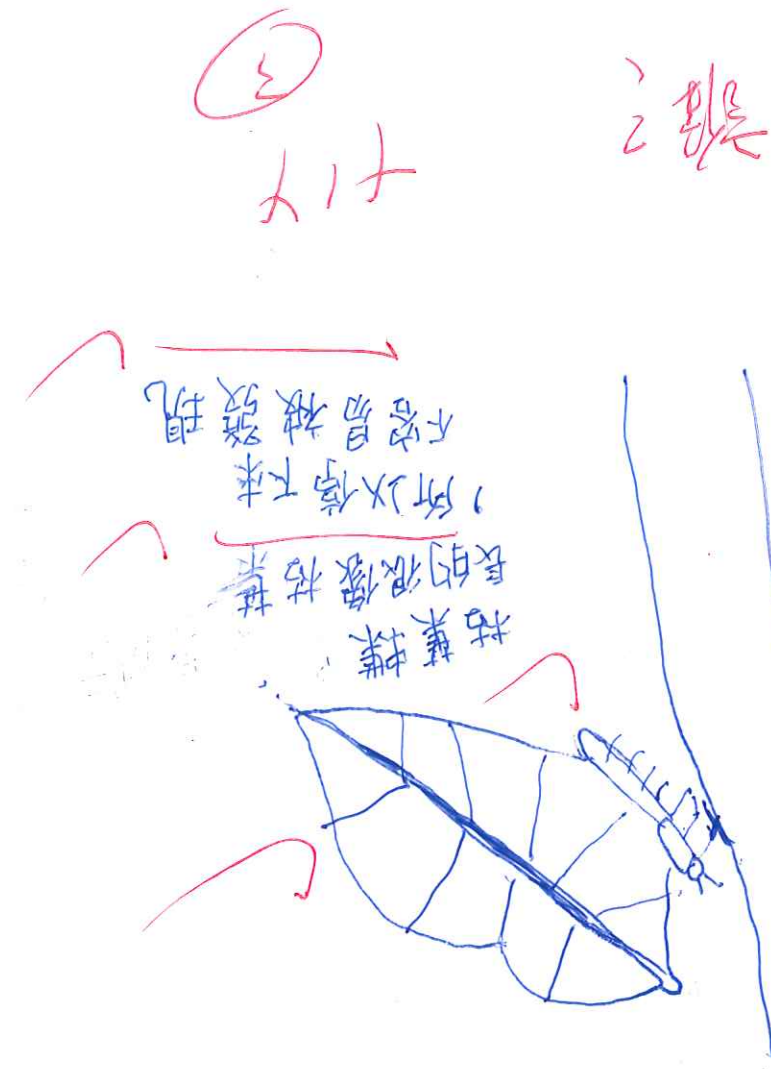 枯葉蝶
長的很像枯葉
，所以停下來
不容易被發現